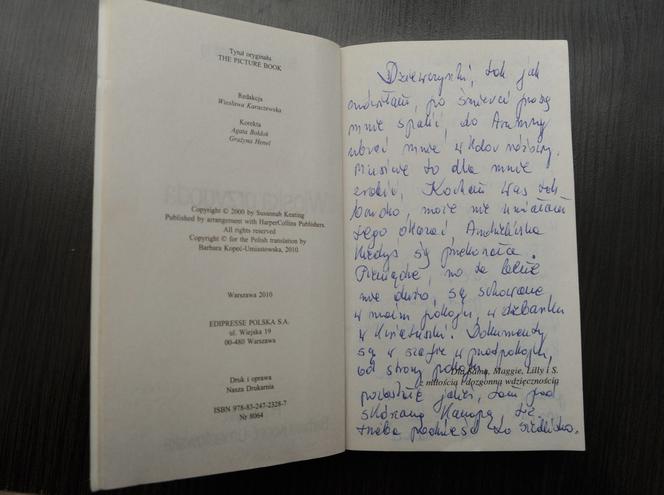 Tytuł oryginału
THE PICTURE BOOK
Redakcja
Wiesława Karaczewska
Korekta
Agata Bołdok
Grażyna Henel
Copyright © 2000 by Susannah Keating
Published by arrangement with HarperCollins Publishers.
All rights reserved
Copyright © for the Polish translation by
Barbara Kopeć-Umiastowska, 2010
Warszawa 2010
EDIPRESSE POLSKA S.A.
ul. Wiejska 19
00-480 Warszawa
Druk i oprawa
Nasza Drukarnia
ISBN 978-83-247-2328-7
Nr 8064
Dziewczynki, tak jak
mówiłam, po śmierci proszę
mnie spalić, do trumny
ubrać mnie w kolor różowy.
Musicie to dla mnie
zrobić. Kocham was tak
bardzo, może nie umiałam
tego okazać
Kiedyś się przekonałca.
Pieniądze, no te
nie dużo, są schowane
w moim pokoju, w dzbanku
w kwiatuszki. Dokumenty
są w szafie w przedpokoju,
od strony pokoju,
Dla Sama, Maggie, Lilly i S.
z miłością i dozgonną wdzięcznością
pozostałe jakieś, tam pod
skórzaną kanapą,
trzeba podnieść do siedliska.